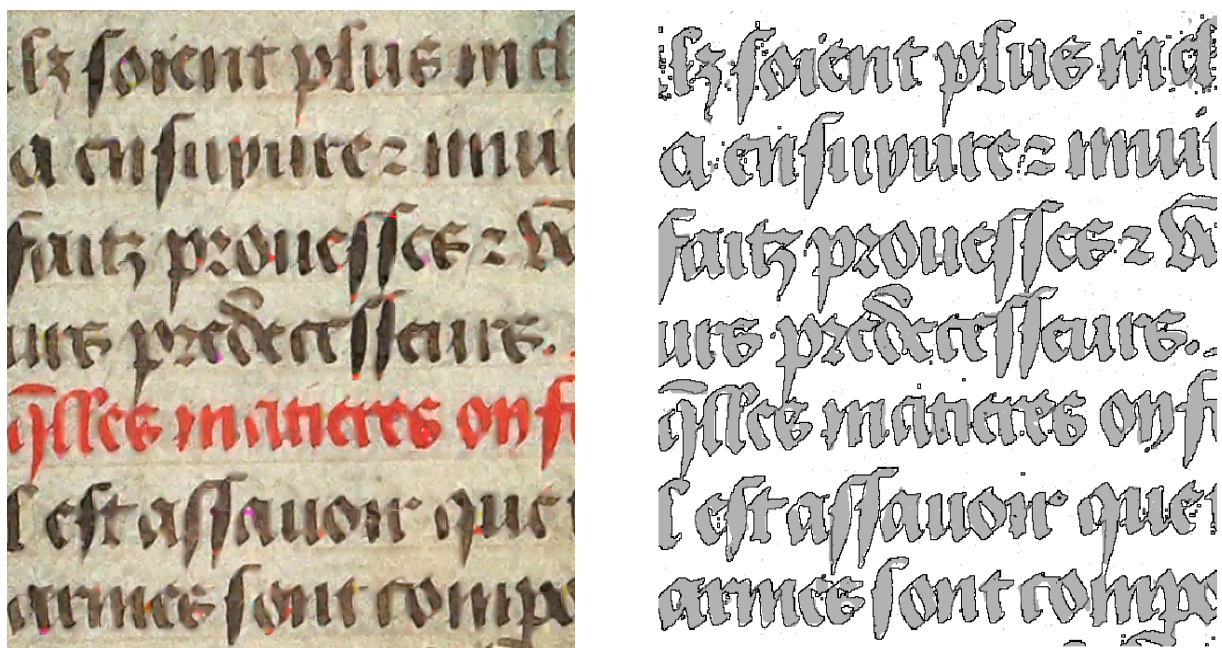 lz soient plus incl
a ensuyure ⁊
faitz prouesses ⁊
urs predecesseurs.
q̄lles matieres on
l est assauoir que
armes sont compo
lz soient plus incl
a ensuyure ⁊
faitz prouesses ⁊
urs predecesseurs.
q̄lles matieres on
l est assauoir que
armes sont compo